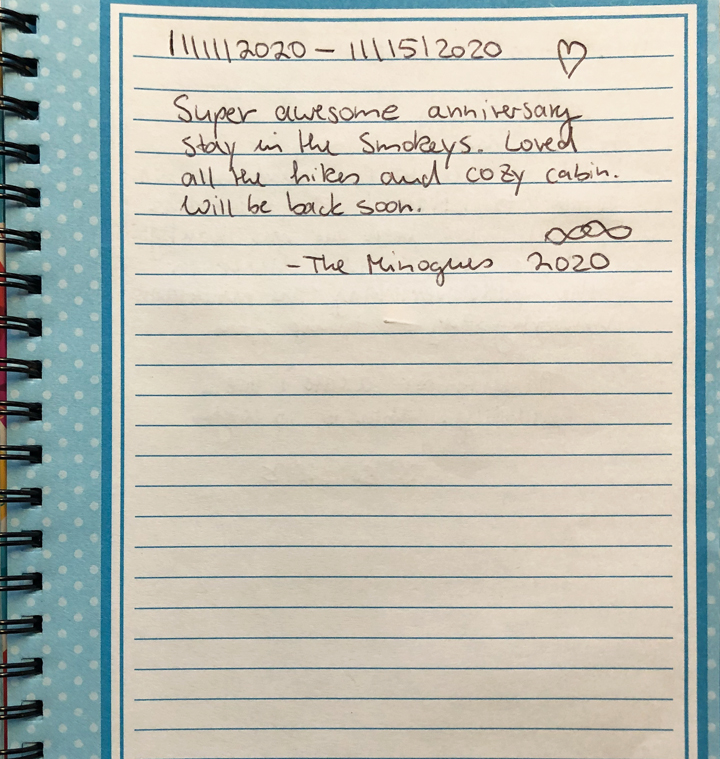 11/11/2020 - 11/15/2020 ♡
Super awesome anniversary
stay in the Smokeys. Loved
all the hikes and cozy cabin.
Will be back soon.
-The Minogues 2020